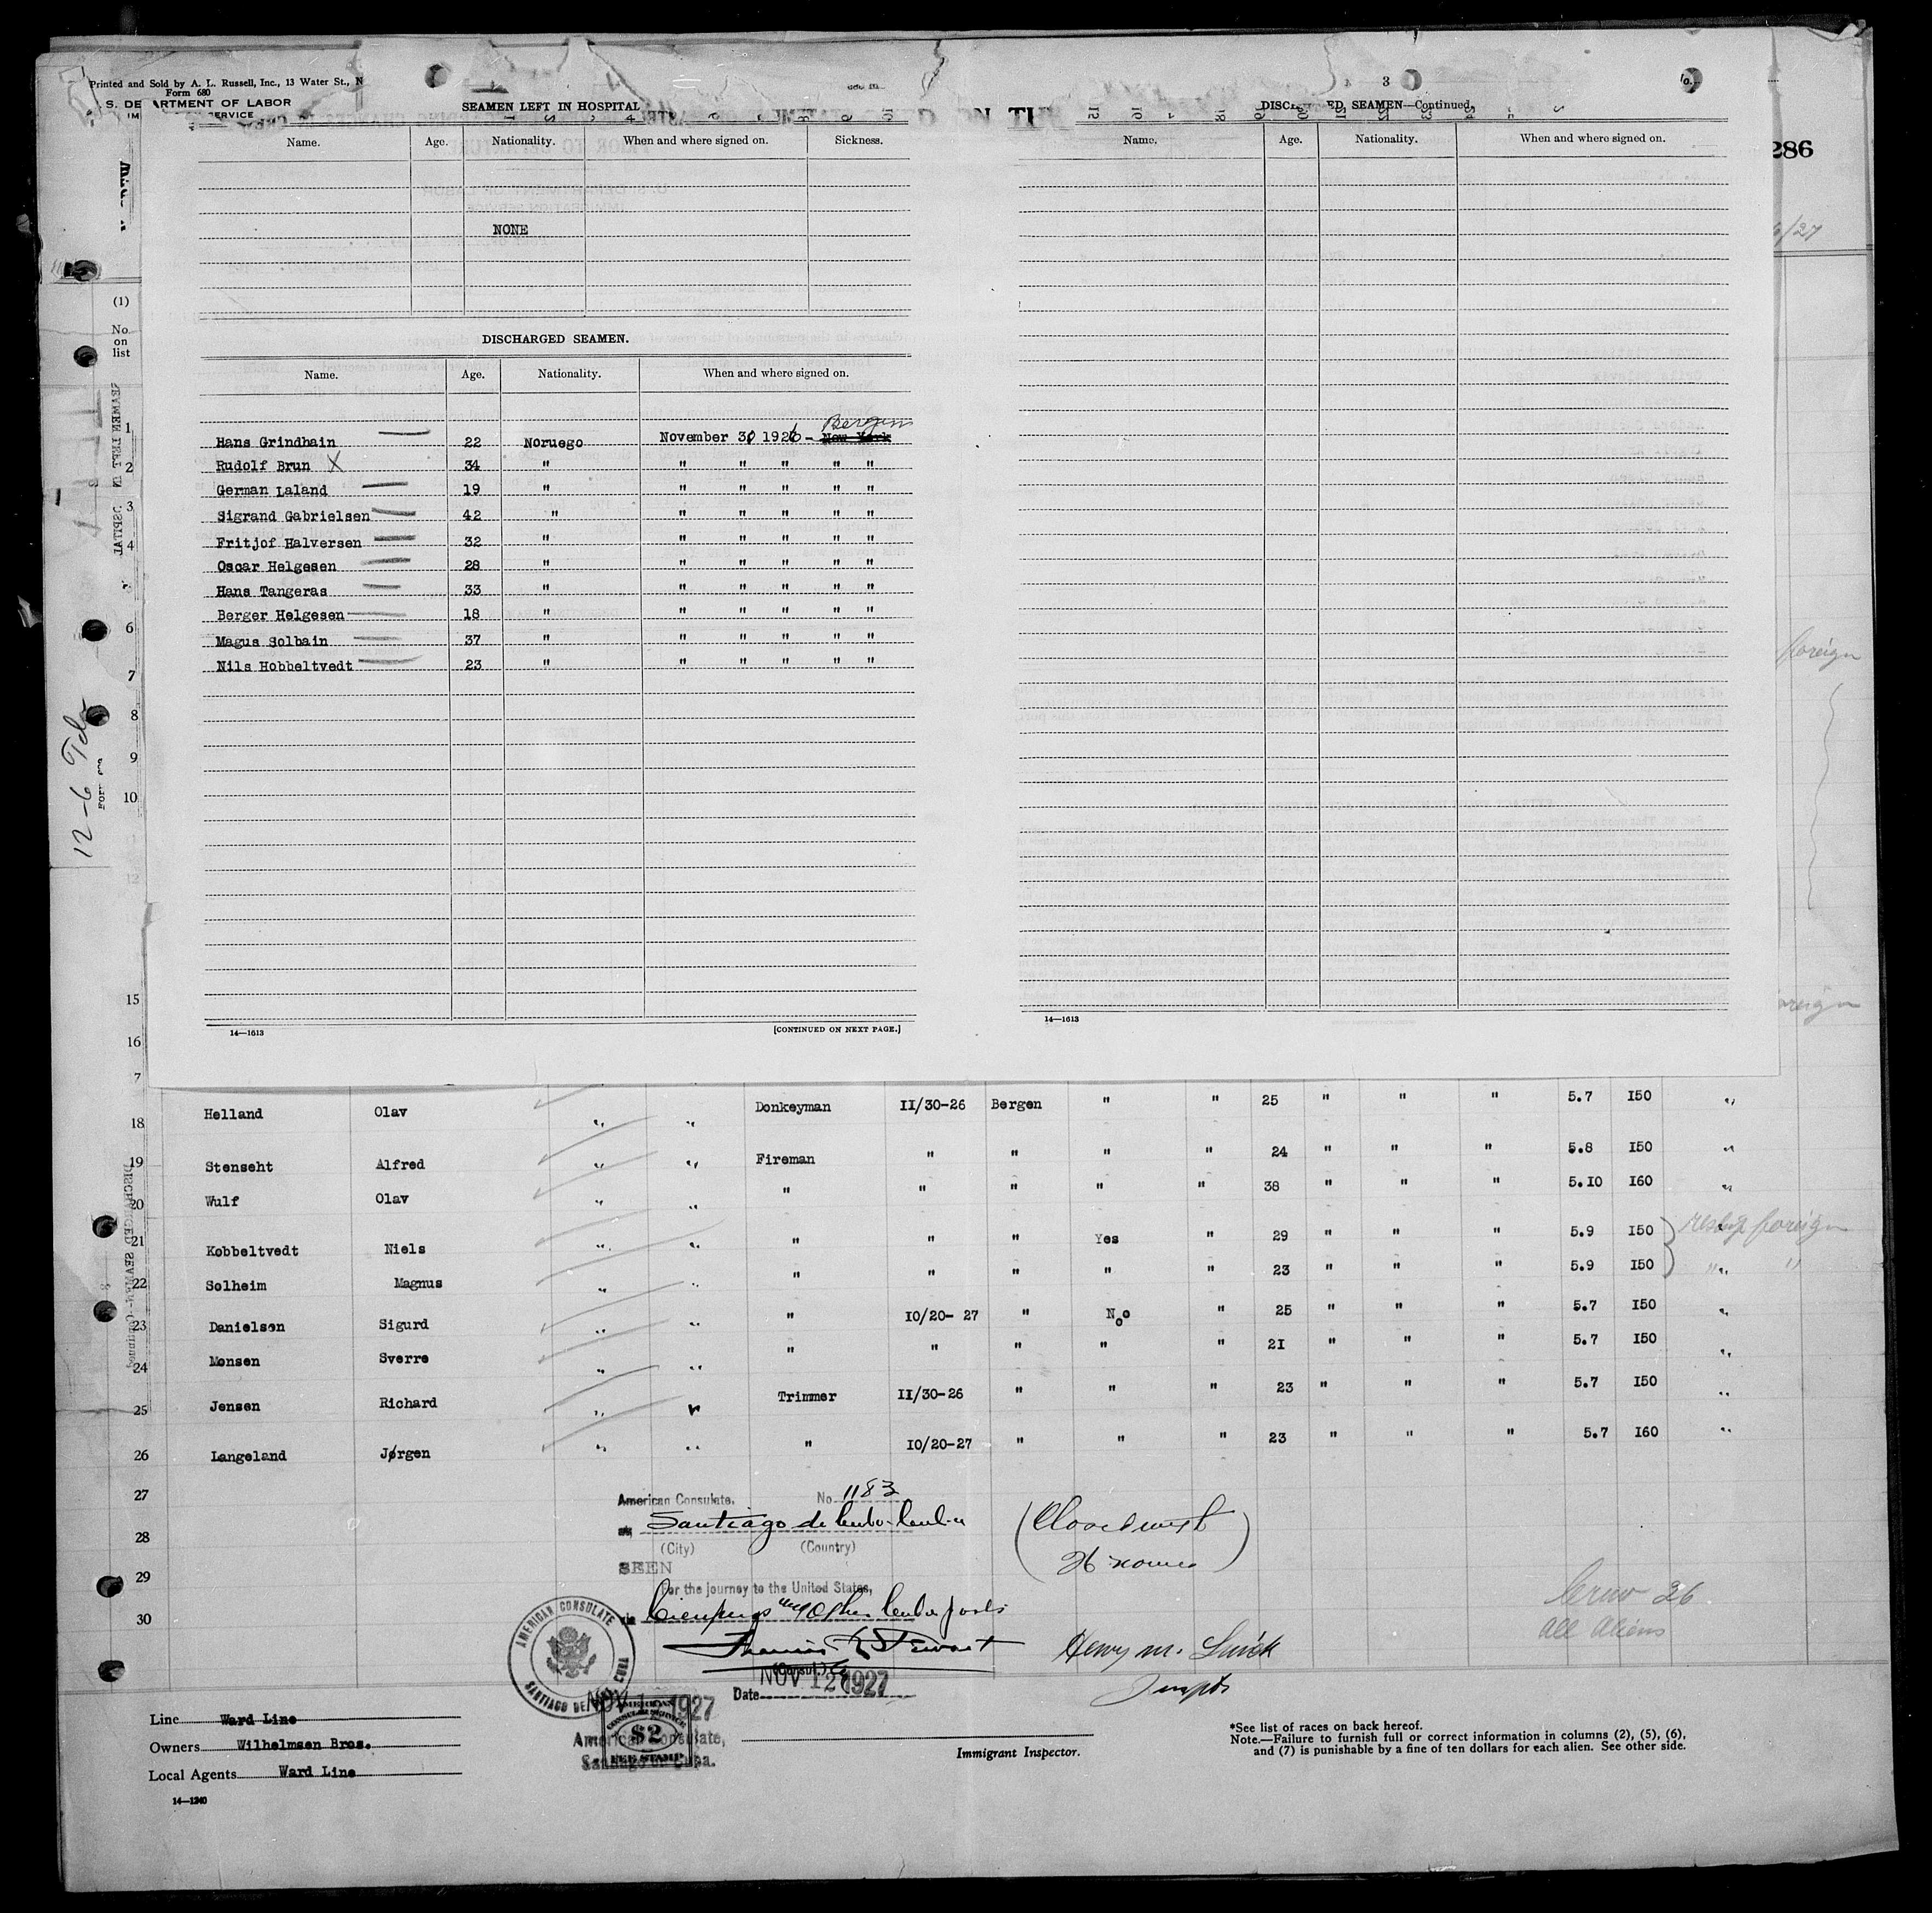 Printed and Sold by A. L. Russell, Inc., 13 Water St., N
Form 680
S. DEPARTMENT OF LABOR
SERVICE
SEAMEN LEFT IN HOSPITAL
Name. Age. Nationality. When and where signed on. Sickness.
NONE
DISCHARGED SEAMEN.
Name. Age. Nationality. When and where signed on.
Bergen
Hans Grindhain 22 Noruego November 30 1926 - New York
Rudolf Brun X 34 " " " " " "
German Laland 19 " " " " " "
Sigrand Gabrielsen 42 " " " " " "
Fritjof Halversen 32 " " " " " "
Oscar Helgesen 28 " " " " " "
Hans Tangeras 33 " " " " " "
Berger Helgesen 18 " " " " " "
Magus Solbain 37 " " " " " "
Nils Hobbeltvedt 23 " " " " " "
14—1613 [CONTINUED ON NEXT PAGE.]
3
DISCHARGED SEAMEN—Continued.
Name. Age. Nationality. When and where signed on.
14—1613
286
6/27
foreign
foreign
(1)
No.
on
list
1
2
3
4
5
6
7
8
9
10
12
15
16
7
12-6 Tela
18 Helland Olav " " Donkeyman II/30-26 Bergen " " 25 " " " 5.7 I50 "
19 Stenseht Alfred " " Fireman " " " " 24 " " " 5.8 I50 "
20 Wulf Olav " " " " " " " 38 " " " 5.10 I60 "
21 Kobbeltvedt Niels " " " " " Yes " 29 " " " 5.9 I50 reship foreign
22 Solheim Magnus " " " " " " " 23 " " " 5.9 I50 " "
23 Danielsen Sigurd " " " 10/20- 27 " No " 25 " " " 5.7 I50 "
24 Monsen Sverre " " " " " " " 21 " " " 5.7 I50 "
25 Jensen Richard " " Trimmer II/30-26 " " " 23 " " " 5.7 I50 "
26 Langeland Jørgen " " " 10/20-27 " " " 23 " " " 5.7 I60 "
27
28
29
30
American Consulate. No. 1183
at Santiago de Cuba Cuba
(City) (Country)
SEEN
For the journey to the United States,
via Cienfuegos and other Cuba ports
(Consul)
Date NOV 12 1927
26 names
Crew 26
All Aliens
Henry M.
AMERICAN CONSULATE
SANTIAGO DE CUBA
NOV 1 1927
AMERICAN CONSULAR SERVICE
$2
FEE STAMP
American Consulate,
Santiago de Cuba.
Line Ward Line
Owners Wilhelmsen Bros.
Local Agents Ward Line
14—1240
Immigrant Inspector.
*See list of races on back hereof.
Note.—Failure to furnish full or correct information in columns (2), (5), (6),
and (7) is punishable by a fine of ten dollars for each alien. See other side.